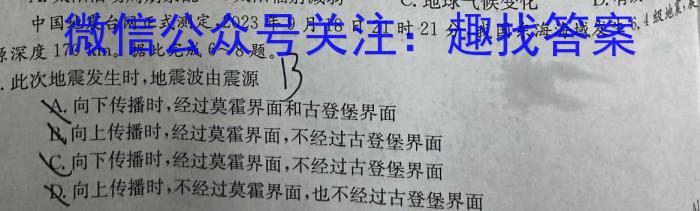 C. 地球气候变化 D.
中国地震台网正式测定,2023年9月18日21时21分,我国东海海域发生6.4级地震,震
源深度170km。据此完成6~8题。
微信公众号关注：趣找答案
.此次地震发生时,地震波由震源 B
A. 向下传播时,经过莫霍界面和古登堡界面
B. 向上传播时,经过莫霍界面,不经过古登堡界面
C. 向下传播时,经过莫霍界面,不经过古登堡界面
D. 向上传播时,不经过莫霍界面,也不经过古登堡界面